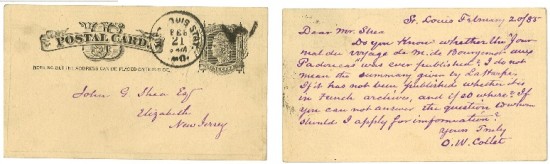 POSTAL CARD.
SAINT LOUIS
FEB
21
MO.
NOTHING BUT THE ADDRESS CAN BE PLACED ON THIS SIDE.
John G Shea Esqr
Elizabeth
New Jersey
St. Louis February 20/85
Dear Mr. Shea
Do you know whether the "Jour
nal du voyage de M. de Bougainville aux
" was ever published? I do not
mean the summary given by
If it has not been published whether it is
in French archives, and if so where? If
you can not answer the question to whom
should I apply for information?
Yours Truly
O. W. Collet